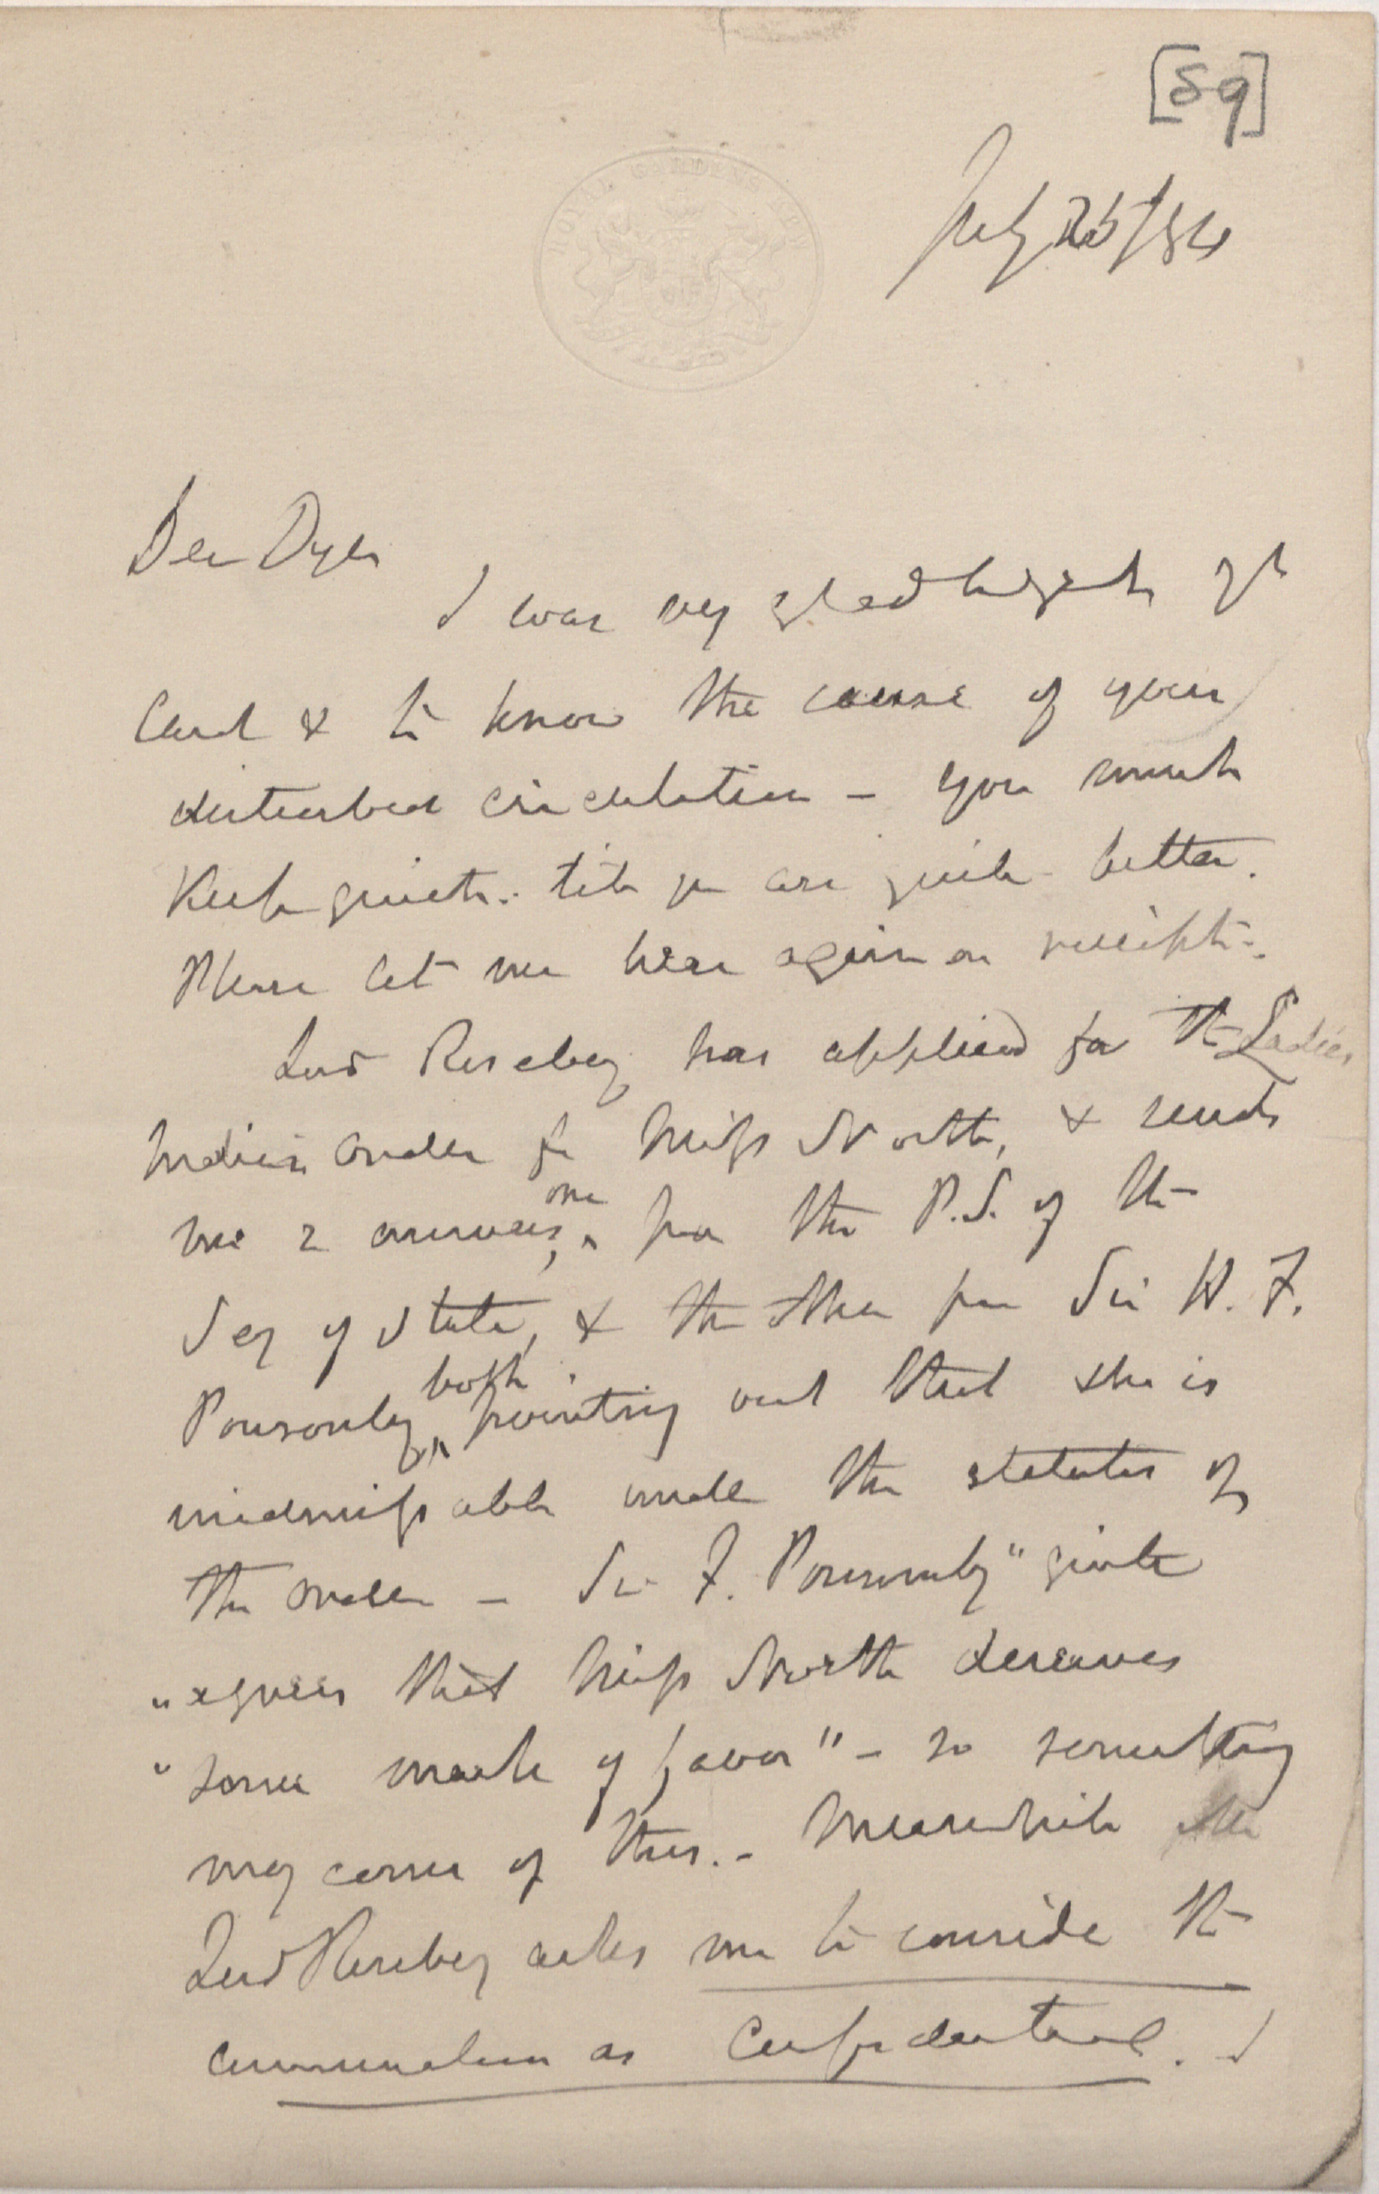 [59]
ROYAL GARDENS KEW
July 25/84
Dear Dyer
I was very glad to get yr
card & to know the cause of your
disturbed circulation – you must
keep quiet. till you are quite better.
Please let me hear again on receipt.
Lord Rosebery has applied for the Ladies
Indian order for Miſs North, & sends
me 2 answers, one from the P.S. of the
Secy of State, & the other from Sir H. F.
Ponsonby, both pointing out that she is
inadmiſsable under the statutes of
the order – Sir F. Ponsonby "quite
"agrees that Miſs North deserves
"some mark of favor" – so something
may come of this. – Meanwhile
Lord Rosebery asks me to consider the
communication as Confidential. I